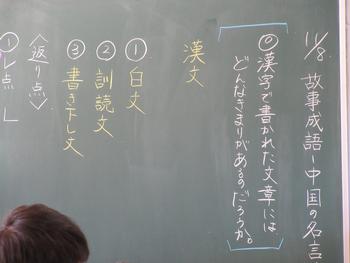 11/8 故事成語ー中国の名言
◎漢字で書かれた文章には
どんなきまりがあるのだろうか。
漢文
①白文
②訓読文
③書き下し文
〈返り点〉
①レ点